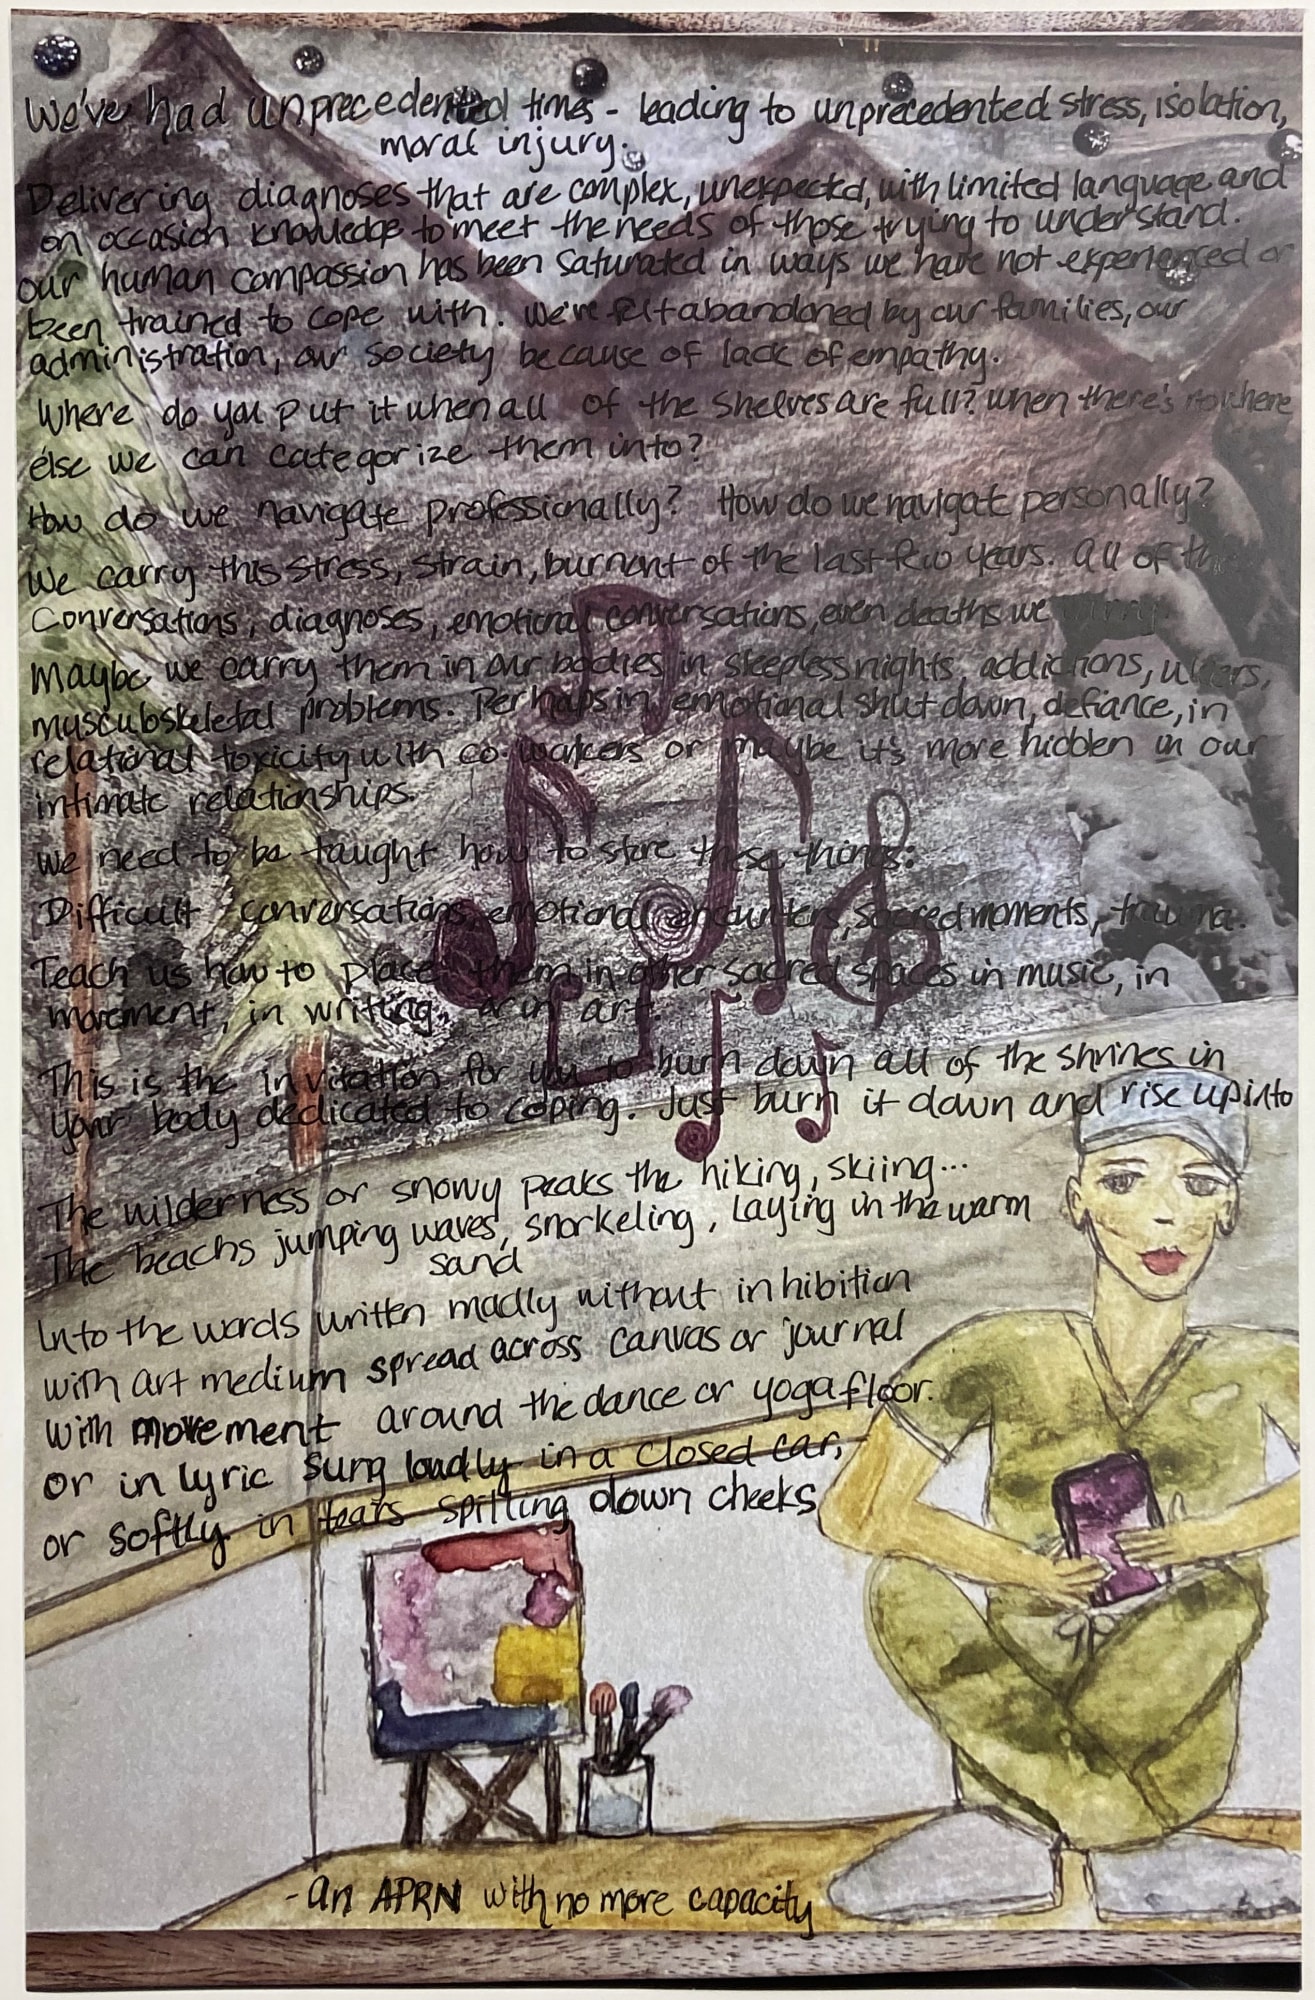 We've had unprecedented times - leading to unprecedented stress, isolation,
moral injury.
Delivering diagnoses that are complex, unexpected, with limited language and
on occasion knowledge to meet the needs of those trying to understand.
our human compassion has been saturated in ways we have not experienced or
been trained to cope with. We've felt abandoned by our families, our
administration, our society because of lack of empathy.
Where do you put it when all of the shelves are full? when there's nowhere
else we can categorize them into?
How do we navigate professionally? How do we navigate personally?
We carry this stress, strain, burnout of the last few years. all of the
Conversations, diagnoses, emotional conversations, even deaths we carry.
Maybe we carry them in our bodies in sleepless nights, addictions, ulcers,
musculoskeletal problems. Perhaps in emotional shut down, defiance, in
relational toxicity with co-workers or maybe it's more hidden in our
intimate relationships.
We need to be taught how to store these things:
Difficult conversations, emotional encounters, sacred moments, trauma.
Teach us how to place them in other sacred spaces in music, in
movement, in writing, or in art.
This is the invitation for you to burn down all of the shrines in
your body dedicated to coping. Just burn it down and rise up into
The wilderness or snowy peaks the hiking, skiing...
The beachs jumping waves, snorkeling, laying in the warm
sand
Into the words written madly without inhibition
with art medium spread across canvas or journal
with movement around the dance or yoga floor.
or in lyric sung loudly in a closed car,
or softly in tears spilling down cheeks
- an APRN with no more capacity